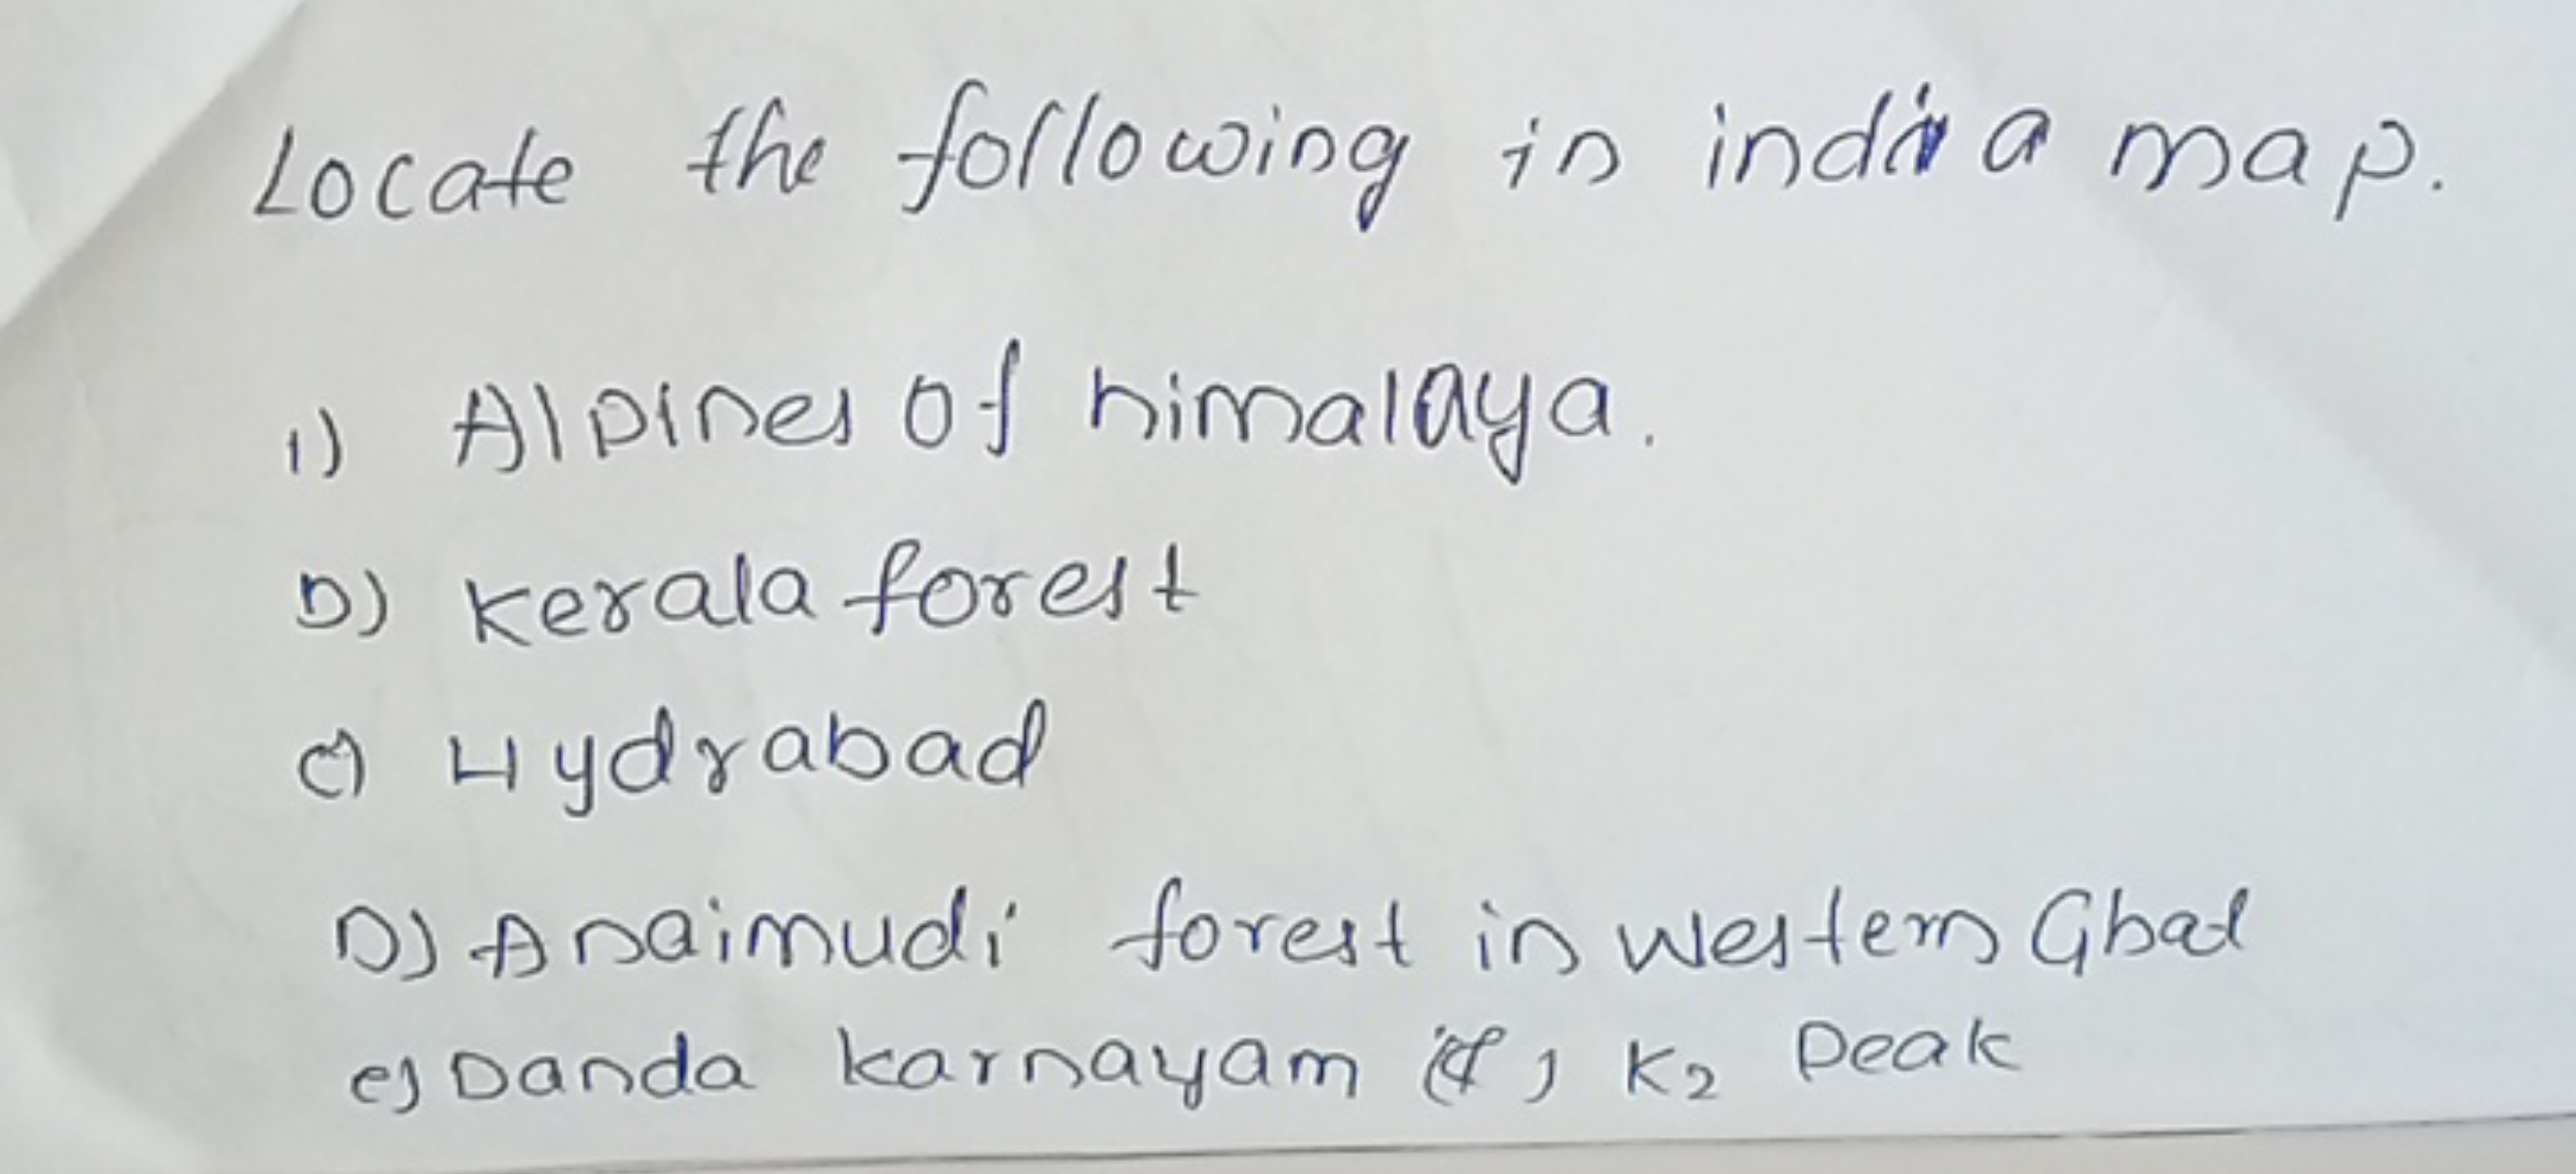 Locate the following in india map.
1) Alpines of himalaya.
b) Kerala forest
c) Hydrabad
D) Anaimudi forest in western Ghat
e) Danda karnayam f) K2 Peak